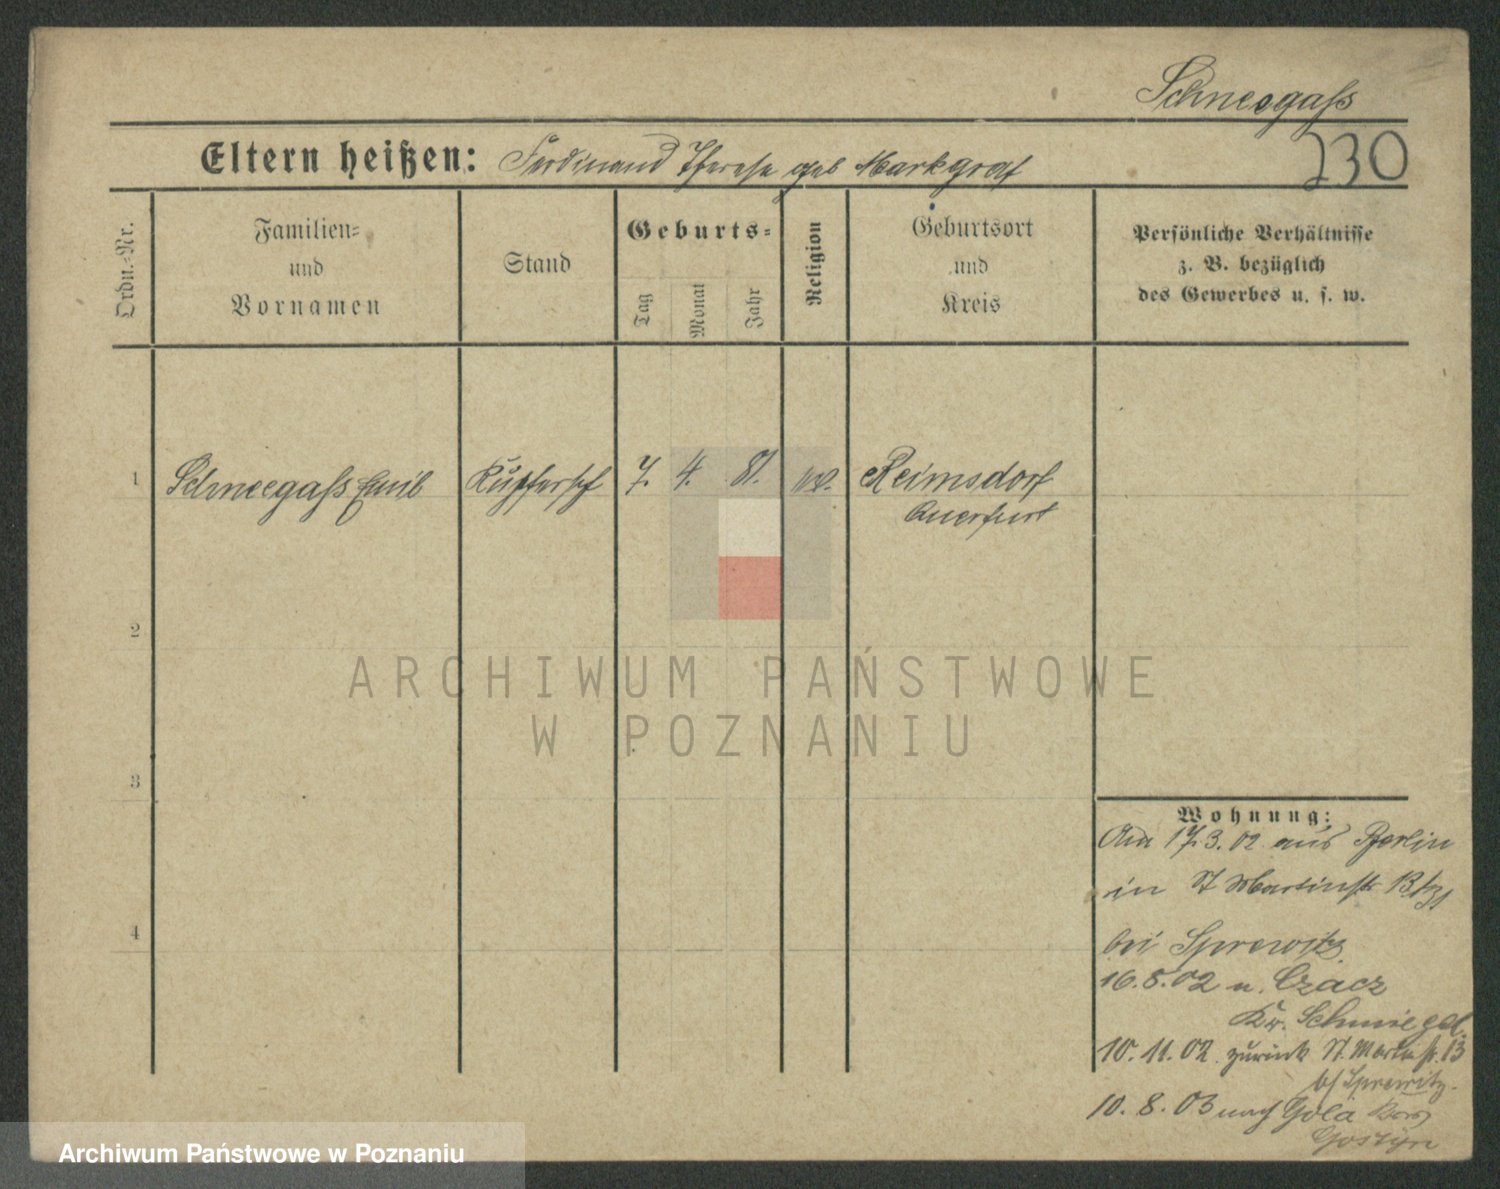 Schneegaß
230
Eltern heißen: Ferdinand Therese geb Markgraf
Ordn.-Nr.
Familien-
und
Vornamen
Stand
Geburts-
Tag
Monat
Jahr
Religion
Geburtsort
und
Kreis
Persönliche Verhältnisse
z. B. bezüglich
des Gewerbes u. s. w.
1 Schneegaß Emil Kupfersch 7. 4. 81. ev. Reimsdorf
Querfurt
2
3
4
Wohnung:
Am 17.3.02 aus Berlin
in St Martinstr 13
bei Sprewitz
16.8.02 n. Czacz
Kr. Schmiegel.
10.11.02 zurück St. Martinstr. 13
b/ Sprewitz.
10.8.03 nach Gola
Gostyn
ARCHIWUM PAŃSTWOWE
W POZNANIU
Archiwum Państwowe w Poznaniu